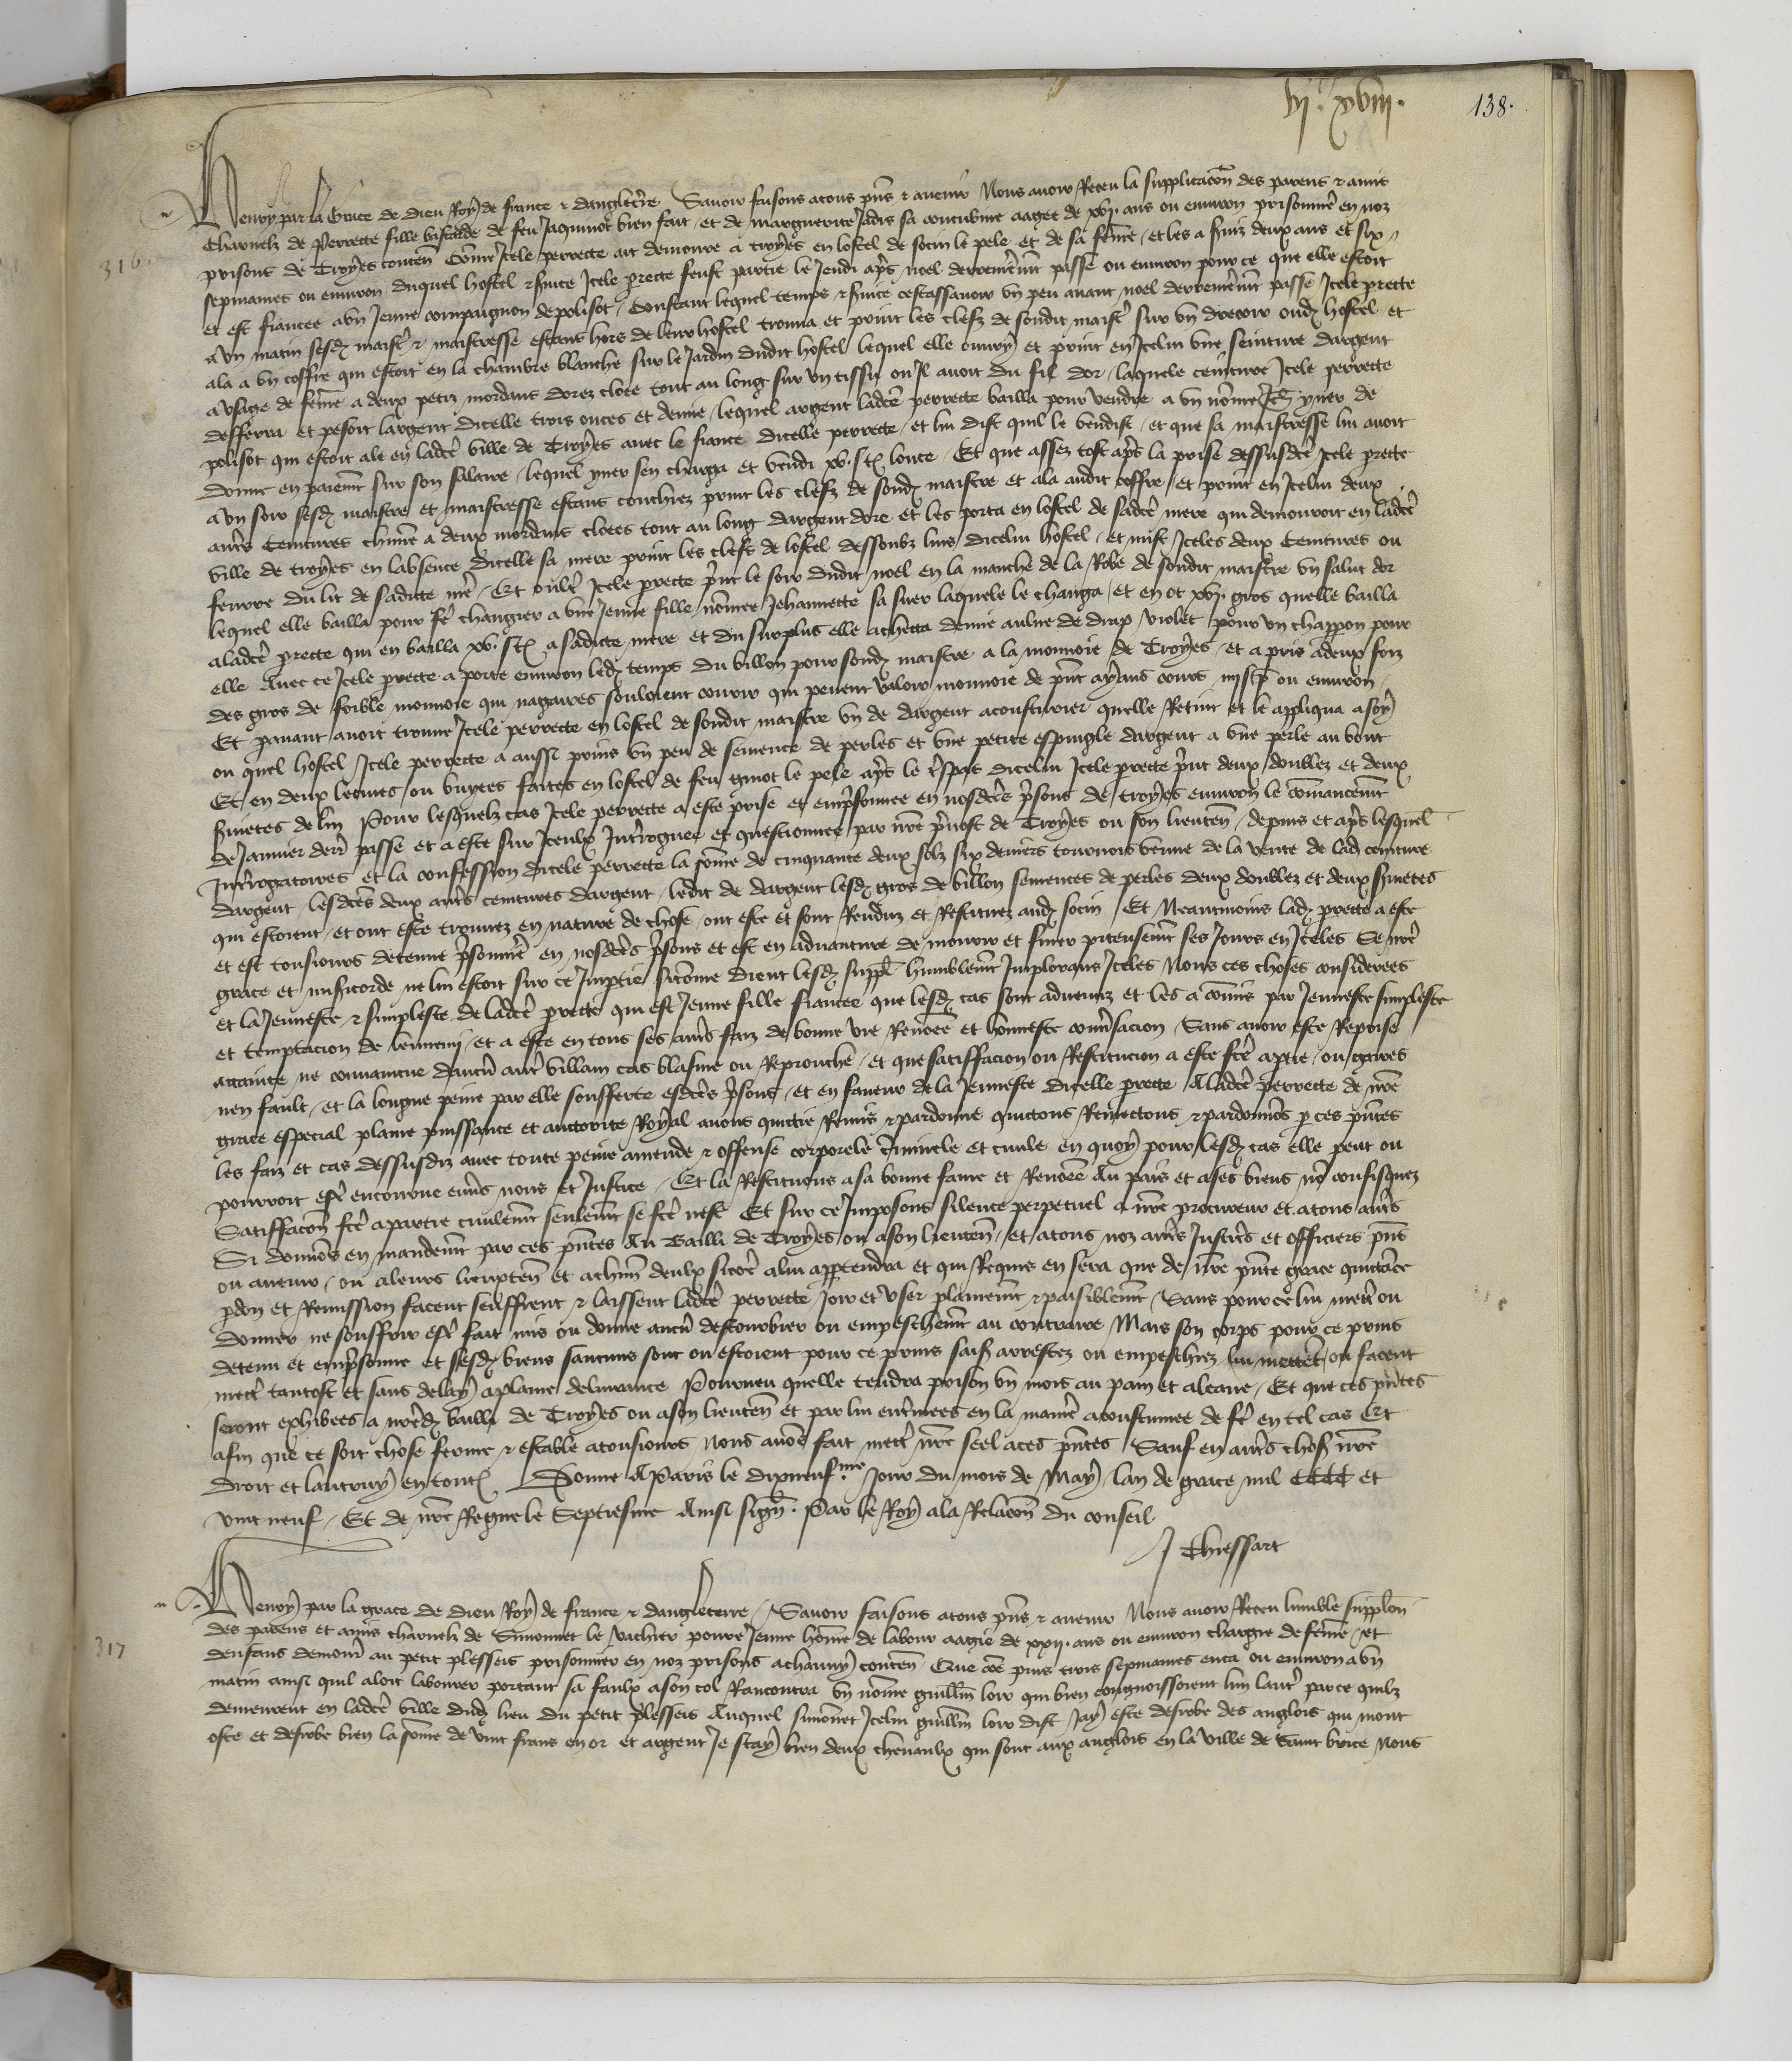 vjxx xviii.
138.
316.
Henry par la Grace de dieu Roy de france & dangleterre Savoir faisons atous pns & avenir Nous avoir Receu la supplicacon des parens & amis
Charnelz de Perrette fille bastarde de feu Jaquinot bien fait et de marguerite Jadis sa concubine aagee de xvj. ans ou environ prisonniere en noz
prisons de Troyes conten Comme Icele perrette ait demoure a troyes en lostel de socin le pele et de sa feme et les a serviz deux ans et six
sepmaines ou environ duquel hostel & service Icele prette feust partie le Jeudi apres noel derrenierement passe ou environ pour ce que elle estoit
et est fiancee a un Jeune compaignon de polisot Constant lequel temps & service cestassavoir un peu avant noel derrenierement passe Icele prette
a un matin sesd maistre & maistresse estans hors de leur hostel trouva et print les clefz de sondit maistre sur un drecoir oud hostel et
ala a un coffre qui estoit en la chambre blanche sur le Jardin dudit hostel lequel elle ouvry et print en Icelui une seinture dargent
a usage de feme a deux petiz mordans dorez cloee tout au long sur un tissu ou Il avoit du fil dor laquele ceinture Icele perrette
defferra et pesoit largent dicelle trois onces et demie lequel argent ladce perrette bailla pour vendre a un nomme yver de
polisot qui estoit ale en ladce ville de Troyes avec le fiance dicelle perrette et lui dist quil le vendist et que sa maistresse lui avoit
donne en paiement sur son salaire lequel yver sen charga et vendi xv. s t lonce Et que assez tost apres la prise dessusdce Icele prette
a un soir sesd maistre et maistresse estans couchiez print les clefz de sond maistre et ala audit coffre et print en Icelui deux
autres Ceintures chune a deux mordans cloees tout au long dargent dore et les porta en lostel de sadce mere qui demouroit en ladce
ville de troyes en labsence dicelle sa mere print les clefz de lostel dessoubz luis dicelui hostel et mist Iceles deux Ceintures ou
feurre du lit de sadicte mere Et oultre Icele prette print le soir dudit noel en la manche de la Robe de sondit maistre un salut dor
lequel elle bailla pour fe changier a une Jeune fille nomee Jehannette sa suer laquele le changa et en ot xvj. gros quelle bailla
aladce prette qui en bailla xv. s t a sadicte mere et du surplus elle achetta demie aulne de drap violet pour un chappon pour
elle Avec ce Icele prette a porte environ led temps du billon pour sond maistre a la monnoie de Troyes et a pris adeux foiz
des gros de foible monnoie qui nagaires souloient courir qui pevent valoir monnoie de pnt ayans cours iiij s p ou environ
Et pavant avoit trouve Icele perrette en lostel de sondit maistre un de dargent acousturier quelle Retint et le appliqua a soy
ou quel hostel Icele perrette a aussi prins un peu de semence de perles et une petite espingle dargent a une perle au bout
Et en deux lecives ou buyees faites en lostel de feu ginot le pele apres le trespas dicelui Icele prette print deux doublez et deux
servietes de lin Pour lesquelz cas Icele perrette a este prise et emprisonnee en nosdces prisons de troyes environ le comancement
de Janvier derr passe et a este sur Iceulx Interroguee et questionnee par nre prevost de Troyes ou son lieuten depuis et apres lesquel
Interrogatoires et la confession dicele perrette la some de cinquante deux solz six deniers tournois venue de la vente de lad ceinture
dargent lesdces deux autres ceintures dargent ledit de dargent lesd gros de billon semences de perles deux doublez et deux servietes
qui estoient et ont este trouvez en nature de chose ont este et sont Renduz et Restituez aud socin Et Neantmoins lad prette a este
et est tousiours detenue prisonniere en nosdces prisons et est en adventure de mourir et finer piteusement ses Jours en Iceles Se nre
grace et misericorde ne lui estoit sur ce Imptie sicomme dient lesd suppl humblement Implorans Iceles Nous ces choses considerees
et la Jeunesse & simplesse de ladce prette qui est Jeune fille fiancee que lesd cas sont advenuz et les a comis par Jeunesse simplesse
et temptacion de lennemi et a este en tous ses autres faiz de bonne vie Renomee et honneste conversacion Sans avoir este Reprise
attainte ne convaincue daucun autre villain cas blasme ou Reprouche et que satiffacion ou Restitucion a este fce aptie ou gaires
nen fault et la longue peine par elle soufferte esdces prisons et en faveur de la Jeunesse dicelle prette A ladce perrette de nre
grace especial plaine puissance et auctorite Royal avons quictie Remis & pardonne quictons Remectons & pardonnons p ces pntes
les faiz et cas dessusdiz avec toute peine amende & offense corporele criminele et civile en quoy pour lesd cas elle peut ou
pourroit estre encourue envers nous et Justice Et la Restituons a sa bonne fame et Renomee Au pais et a ses biens non confisquez
Satiffacon fce apartie civilement seulement se fce nest Et sur ce Imposons silence perpetuel a nre procureur et atous autres
Si donnons en mandement par ces pntes Au Bailli de Troyes ou a son lieuten et atous noz autres Justicers et officiers pns
ou avenir ou a leurs lieuxten et achun deulx sicome alui appartendra et qui Requis en sera que de nre pnte grace quictance
pdon et Remission facent seuffrent & laissent ladce perrette Joir et User plainement & paisiblement Sans pour ce lui mettre ou
donner ne souffrir estre fait mis ou donne aucun destourbier ou empeschement au contraire Mais son corps pour ce prins
detenu et emprisonne et sesd biens saucuns sont ou estoient pour ce prins saisiz arrestez ou empeschez lui mettent ou facent
mettre tantost et sans delay aplaine delivrance Pourveu quelle tendra prison un mois au pain et aleaue Et que ces pntes
seront exhibees a nred bailli de Troyes ou a son lieuten et par lui enterinees en la maniere acoustumee de fe en tel cas Et
afin que ce soit chose ferme & estable atousiours Nous avons fait mettre nre seel a ces pntes Sauf en autres choses nre
droit et lautruy en toutes Donne A Paris le dixneufme. Jour du mois de May lan de grace mil CCCC et
vint neuf Et de nre Regne le Septiesme Ainsi sign. Par le Roy ala Relacon du conseil
J Thiessart
317
Henry par la grace de dieu Roy de france & dangleterre Savoir faisons atous pns & avenir Nous avoir Receu lumble supplon
des parens et amis charnelz de Simonnet le vachier povre Jeune home de labour aagie de xxij. ans ou environ chargie de feme et
denfans demour au petit plesseis prisonnier en noz prisons achauny conten Que come puis trois sepmaines enca ou environ a un
matin ainsi quil aloit labourer portant sa faulx a son col Rancontra un nomme guillm loir qui bien congnoissoient lun lautre parce quilz
demeurent en ladce ville dud lieu du petit plesseis Auquel simonnet Icelui guillm loir dist Jay este desrobe des anglois qui mont
oste et desrobe bien la some de vint frans en or et argent Je scay bien deux chevaulx qui sont aux anglois en la ville de Saint brice Nous